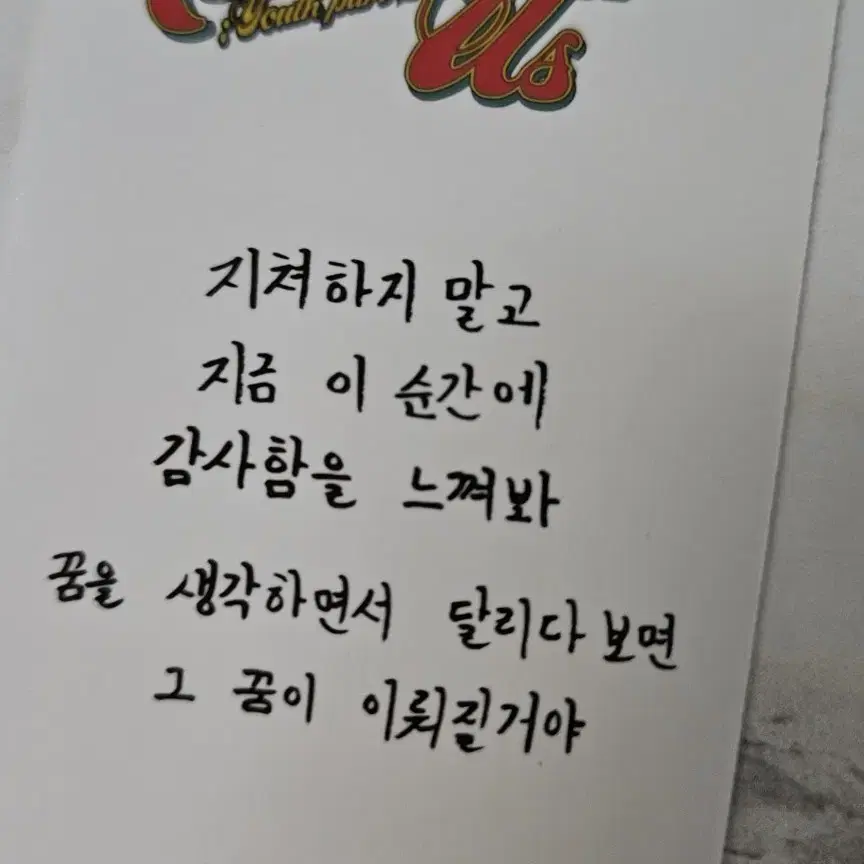 : Youth
Us
지쳐하지 말고
지금 이 순간에
감사함을 느껴봐
꿈을 생각하면서 달리다 보면
그 꿈이 이뤄질거야